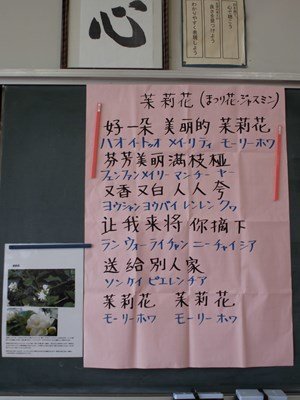 心
茉莉花(まつり花・ジャスミン)
好一朵 美丽的 茉莉花
ハオ イートゥオ メイリ ティ モーリーホワ
芬芳美丽满枝桠
フェンファンメイリー マン チー ヤー
又香又白人人夸
ヨウシャンヨウパイ レンレン クワ
让我来将你摘下
ラン ウォーライチャン ニー チャイ シア
送给别人家
ソン ケイ ピエレンチア
茉莉花 茉莉花
モーリーホワ モーリーホワ